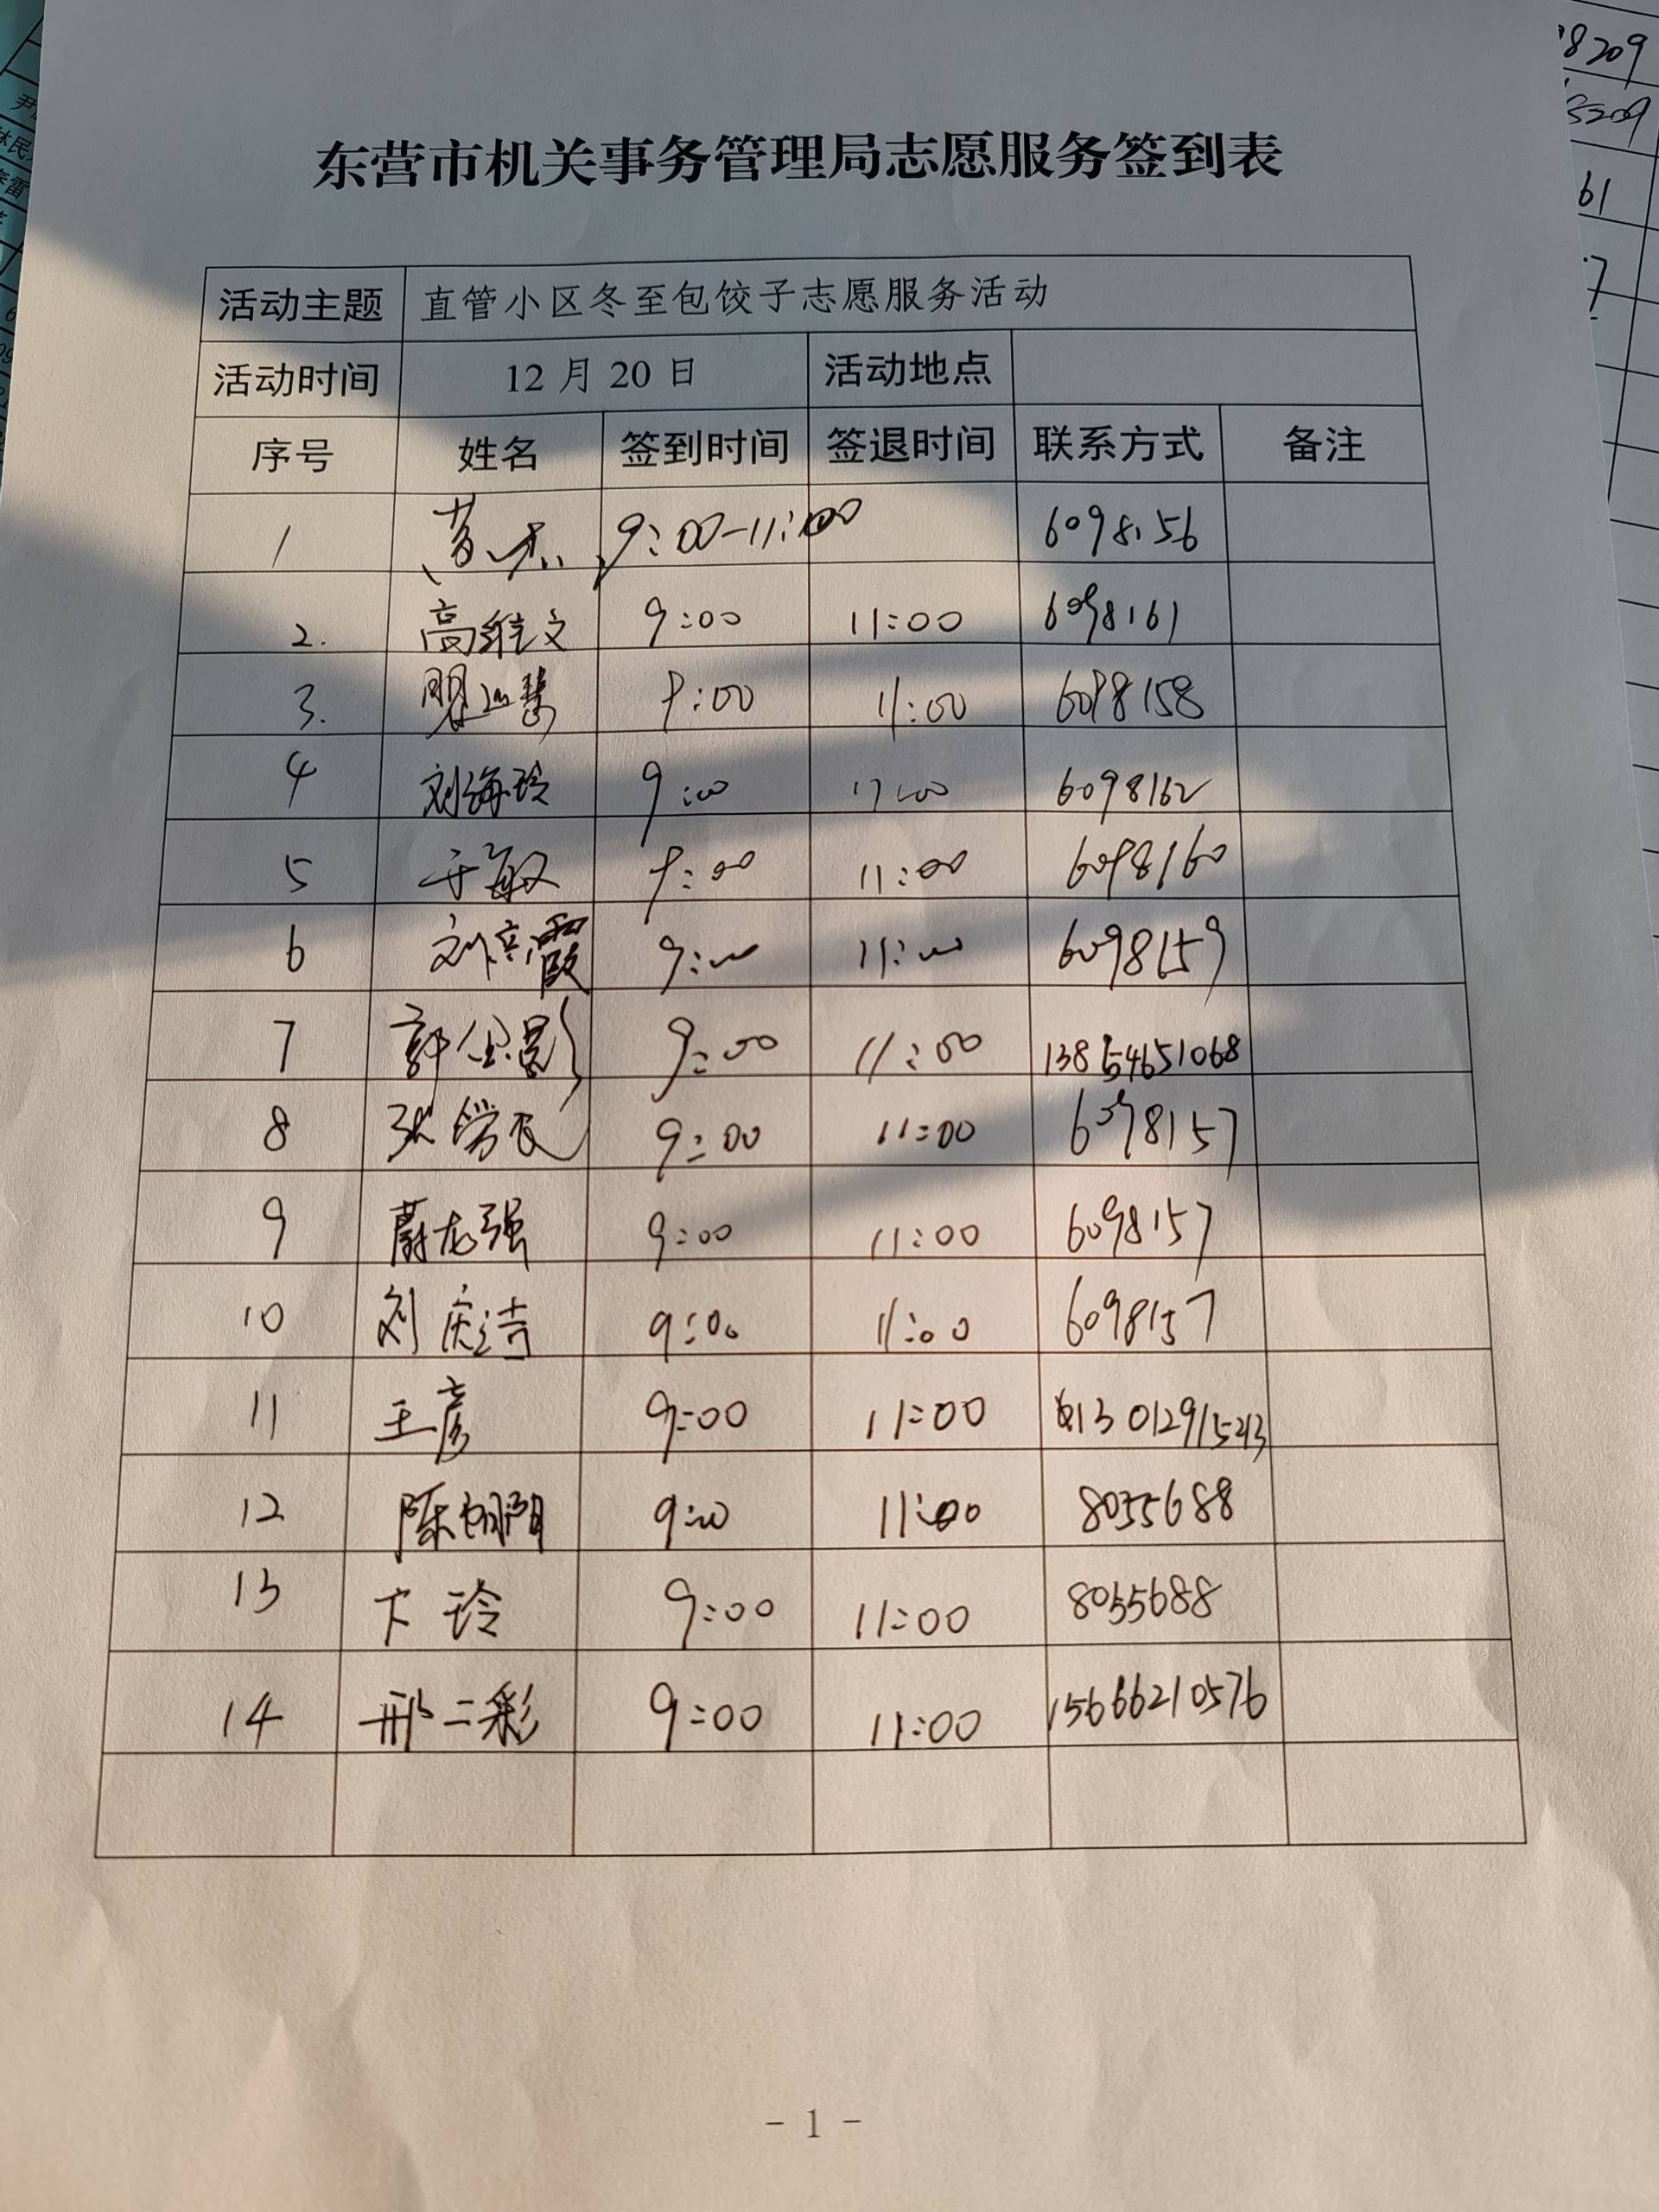 东营市机关事务管理局志愿服务签到表
活动主题 直管小区冬至包饺子志愿服务活动
活动时间 12月20日 活动地点
序号 姓名 签到时间 签退时间 联系方式 备注
1 9:00-11:00 6098156
2. 高维文 9:00 11:00 6098161
3. 9:00 11:00 6098158
4 刘海玲 9:00 11:00 6098162
5 于敏 9:00 11:00 6098160
6 刘 霞 9:00 11:00 6098159
7 郭 影 9:00 11:00 13854651068
8 张 9:00 11:00 6098157
9 蔚龙强 9:00 11:00 6098157
10 刘庆涛 9:00 11:00 6098157
11 王彦 9:00 11:00 13012915213
12 陈 阳 9:00 11:00 8035688
13 卞玲 9:00 11:00 8035688
14 邢二彩 9:00 11:00 15666210576
- 1 -
8209
61
7